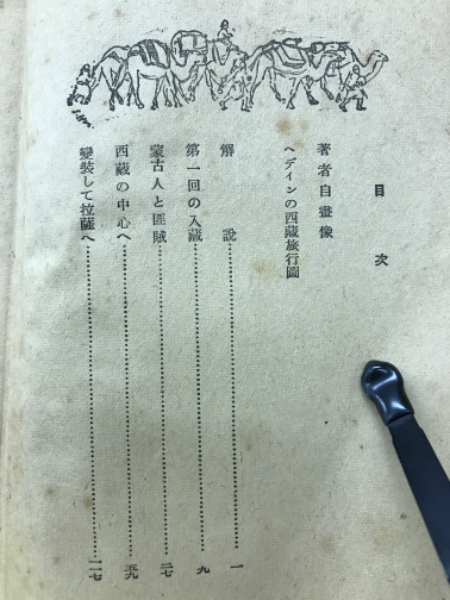 目次
著者自畫像
ヘディンの西藏旅行圖
解説……一
第一回の入藏……九
蒙古人と匪賊……二七
西藏の中心へ……五九
變裝して拉薩へ……一一七